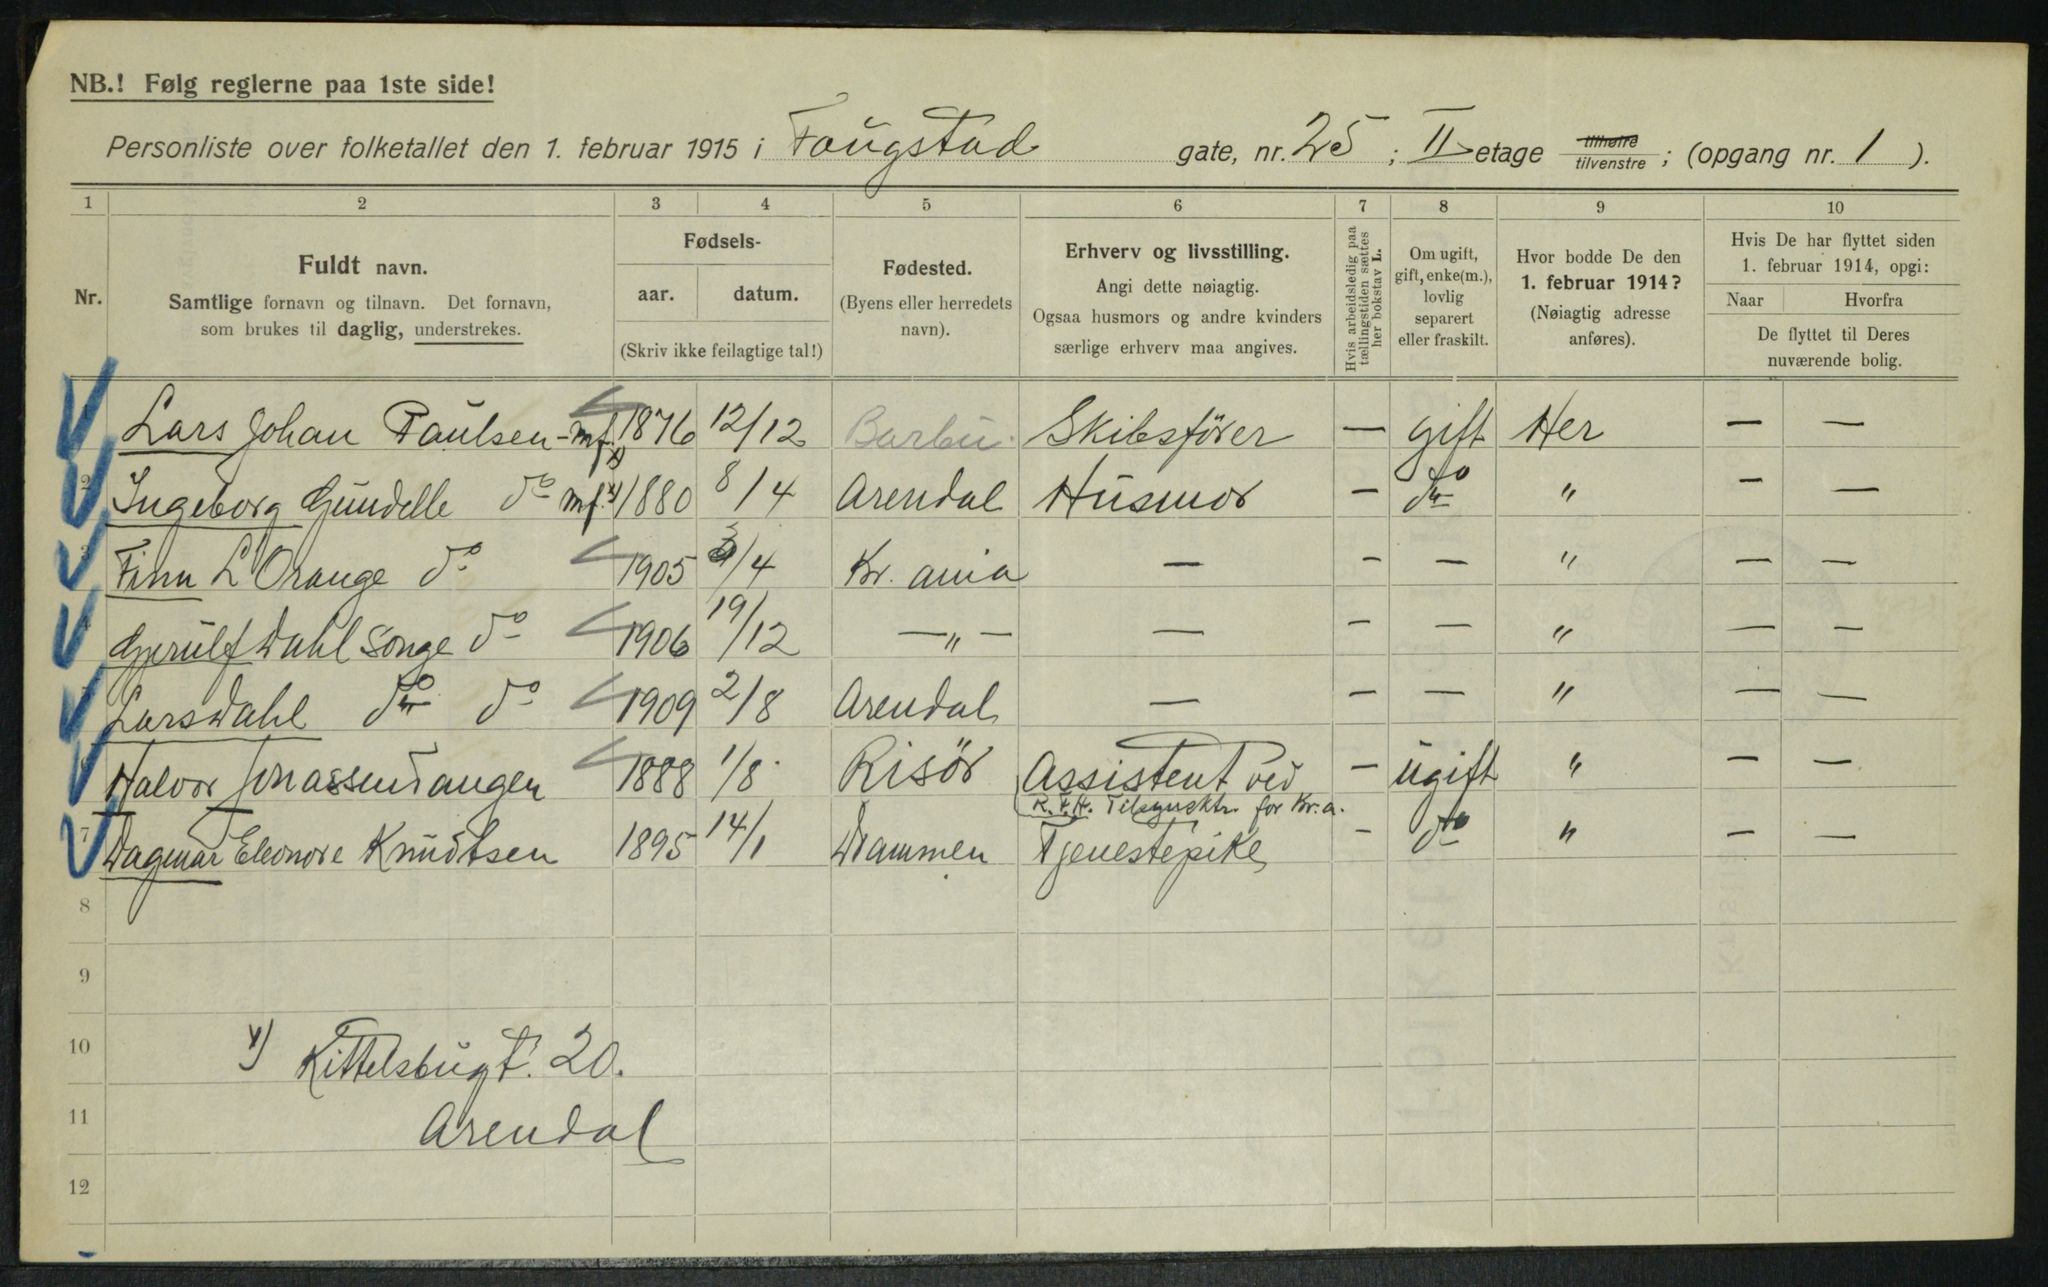 NB.! Følg reglerne paa 1ste side!
Personliste over folketallet den 1. februar 1915 i Faugstad gate, nr. 25 ; II etage tilhøire tilvenstre ; (opgang nr. 1 ).
1 2 3 4 5 6 7 8 9 10
Nr.
Fuldt navn.
Samtlige fornavn og tilnavn. Det fornavn,
som brukes til daglig, understrekes.
Fødsels-
aar. datum.
(Skriv ikke feilagtige tal!)
Fødested.
(Byens eller herredets
navn).
Erhverv og livsstilling.
Angi dette nøiagtig.
Ogsaa husmors og andre kvinders
særlige erhverv maa angives.
Hvis arbeidsledig paa
tællingstiden sættes
her bokstav L.
Om ugift,
gift, enke(m.),
lovlig
separert
eller fraskilt.
Hvor bodde De den
1. februar 1914?
(Nøiagtig adresse
anføres).
Hvis De har flyttet siden
1. februar 1914, opgi:
Naar Hvorfra
De flyttet til Deres
nuværende bolig.
Lars Johan Paulsen - mf. x) 1876 12/12 Barbu. Skibsförer — gift Her — —
2 Ingeborg Gundelle do mf. x) 1880 8/4 Arendal Husmor — do " — —
3 Finn L'Orange do 1905 /4 Kr. ania — — — " — —
4 Gjerulf Dahl Songe do 1906 19/12 — " — — — — " — —
5 Lars Dahl do do 1909 2/8 Arendal — — — " — —
6 Halvor Jonassen Tangen 1888 1/8 Risör Assistent ved — ugift " — —
for Kr.a.
7 Dagmar Eleonore Knudtsen 1895 14/1 Drammen Tjenestepike — do " — —
8
9
10 x) Kittelsbugt. 20.
11 Arendal
12